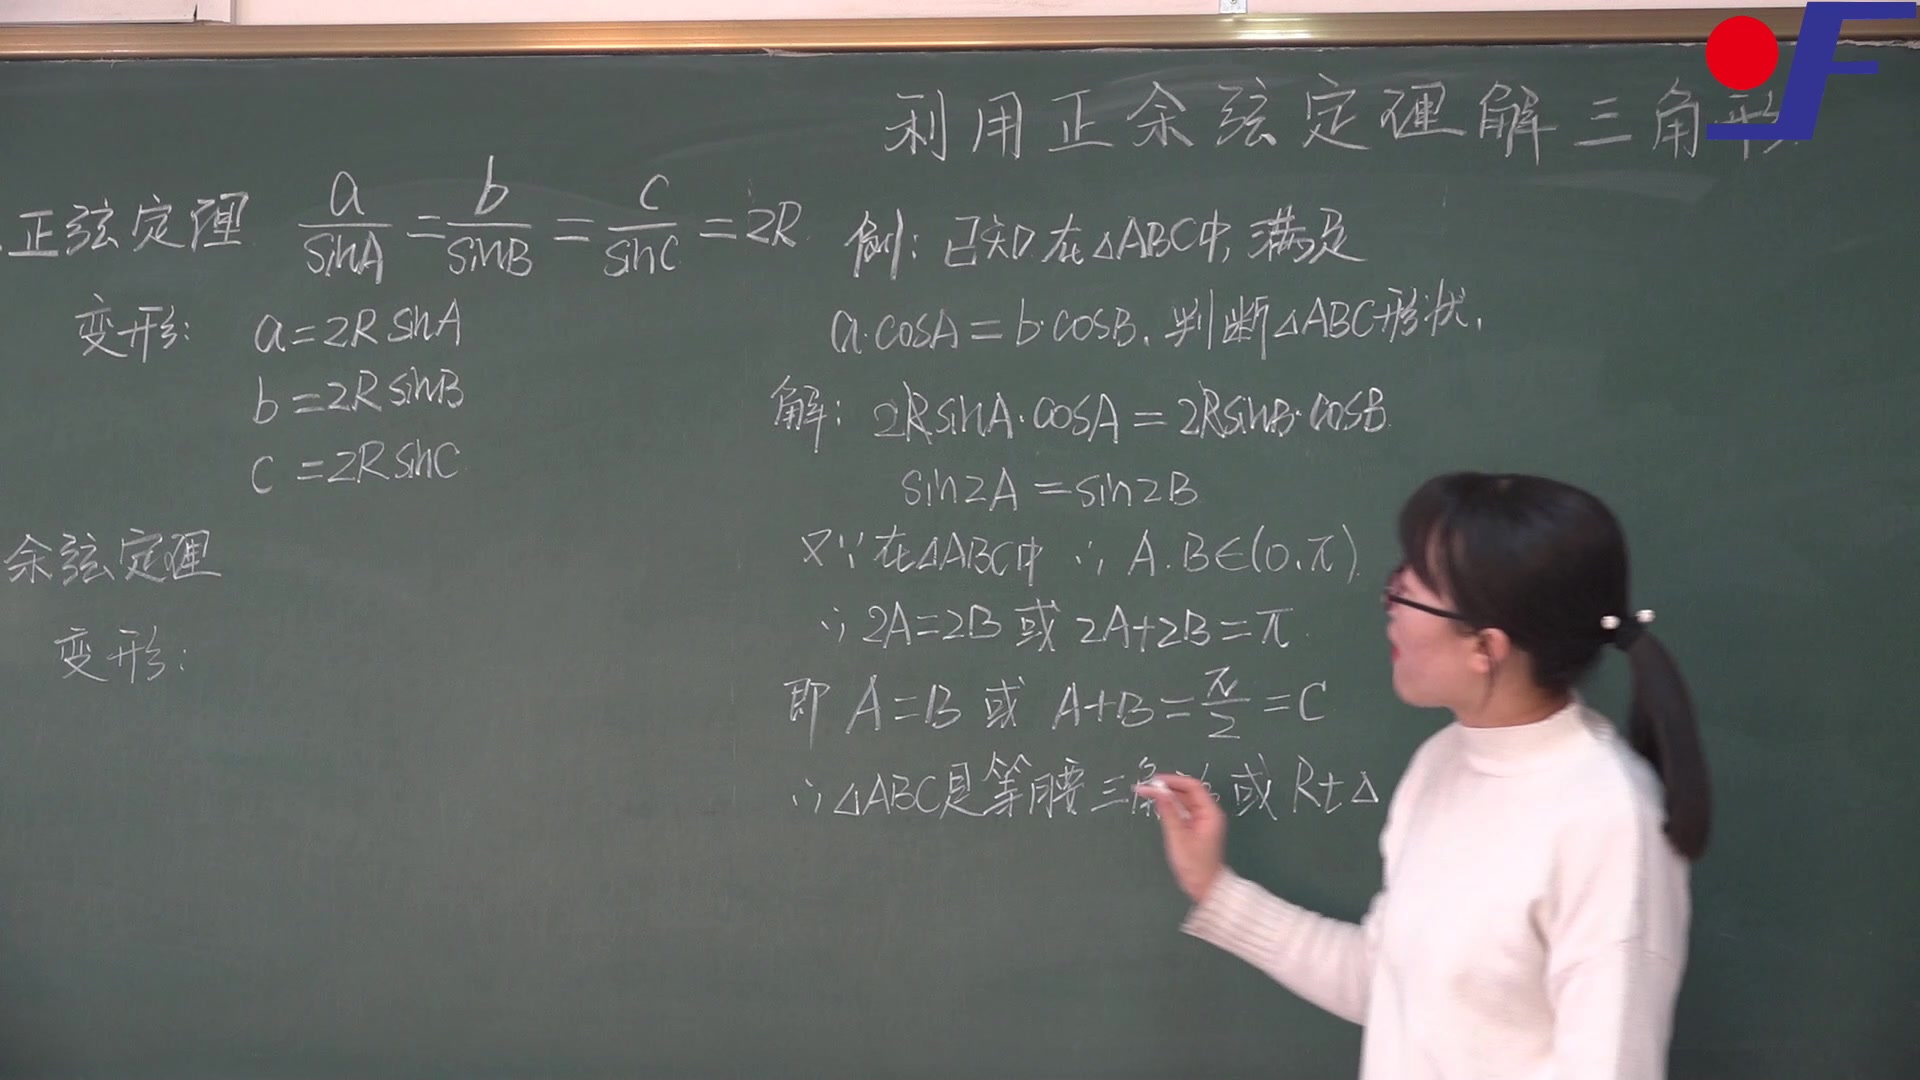 利用正余弦定理解三角形
正弦定理 a/sinA = b/sinB = c/sinC = 2R
变形: a=2RsinA
b=2RsinB
c=2RsinC
余弦定理
变形:
例: 已知在△ABC中, 满足
a·cosA=b·cosB. 判断△ABC形状.
解: 2RsinA·cosA=2RsinB·cosB
sin2A=sin2B
又∵在△ABC中 ∴ A.B∈(0.π)
∴ 2A=2B 或 2A+2B=π.
即 A=B 或 A+B=π/2=C
∴△ABC是等腰三角形或 Rt△